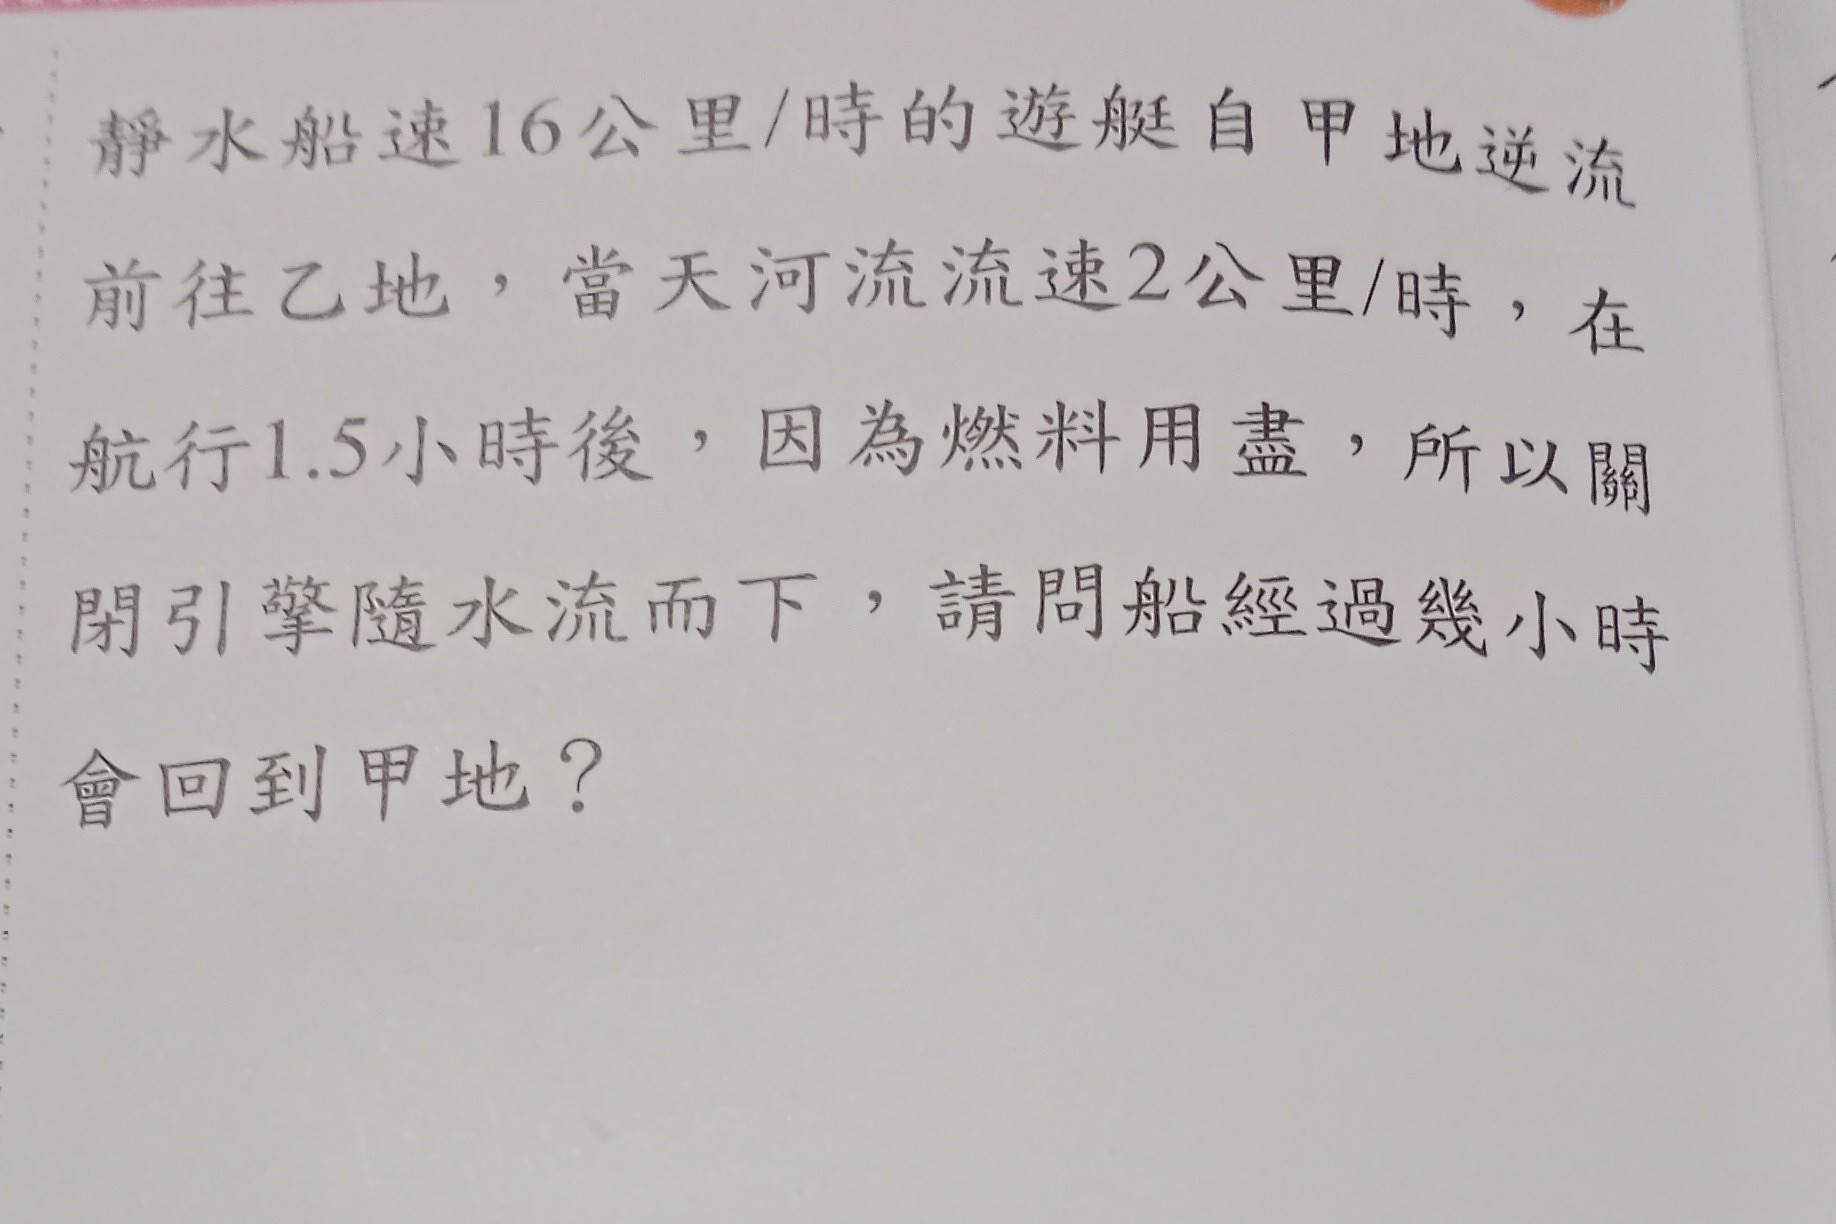 靜水船速16公里/時的遊艇自甲地逆流
前往乙地，當天河流流速2公里/時，在
航行1.5小時後，因為燃料用盡，所以關
閉引擎隨水流而下，請問船經過幾小時
會回到甲地？